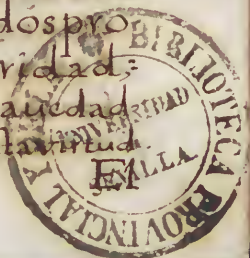 dos pro
ridad;
auedad
la virtud.
El
BIBLIOTECA PROVINCIAL
UNIVERSIDAD
SEVILLA